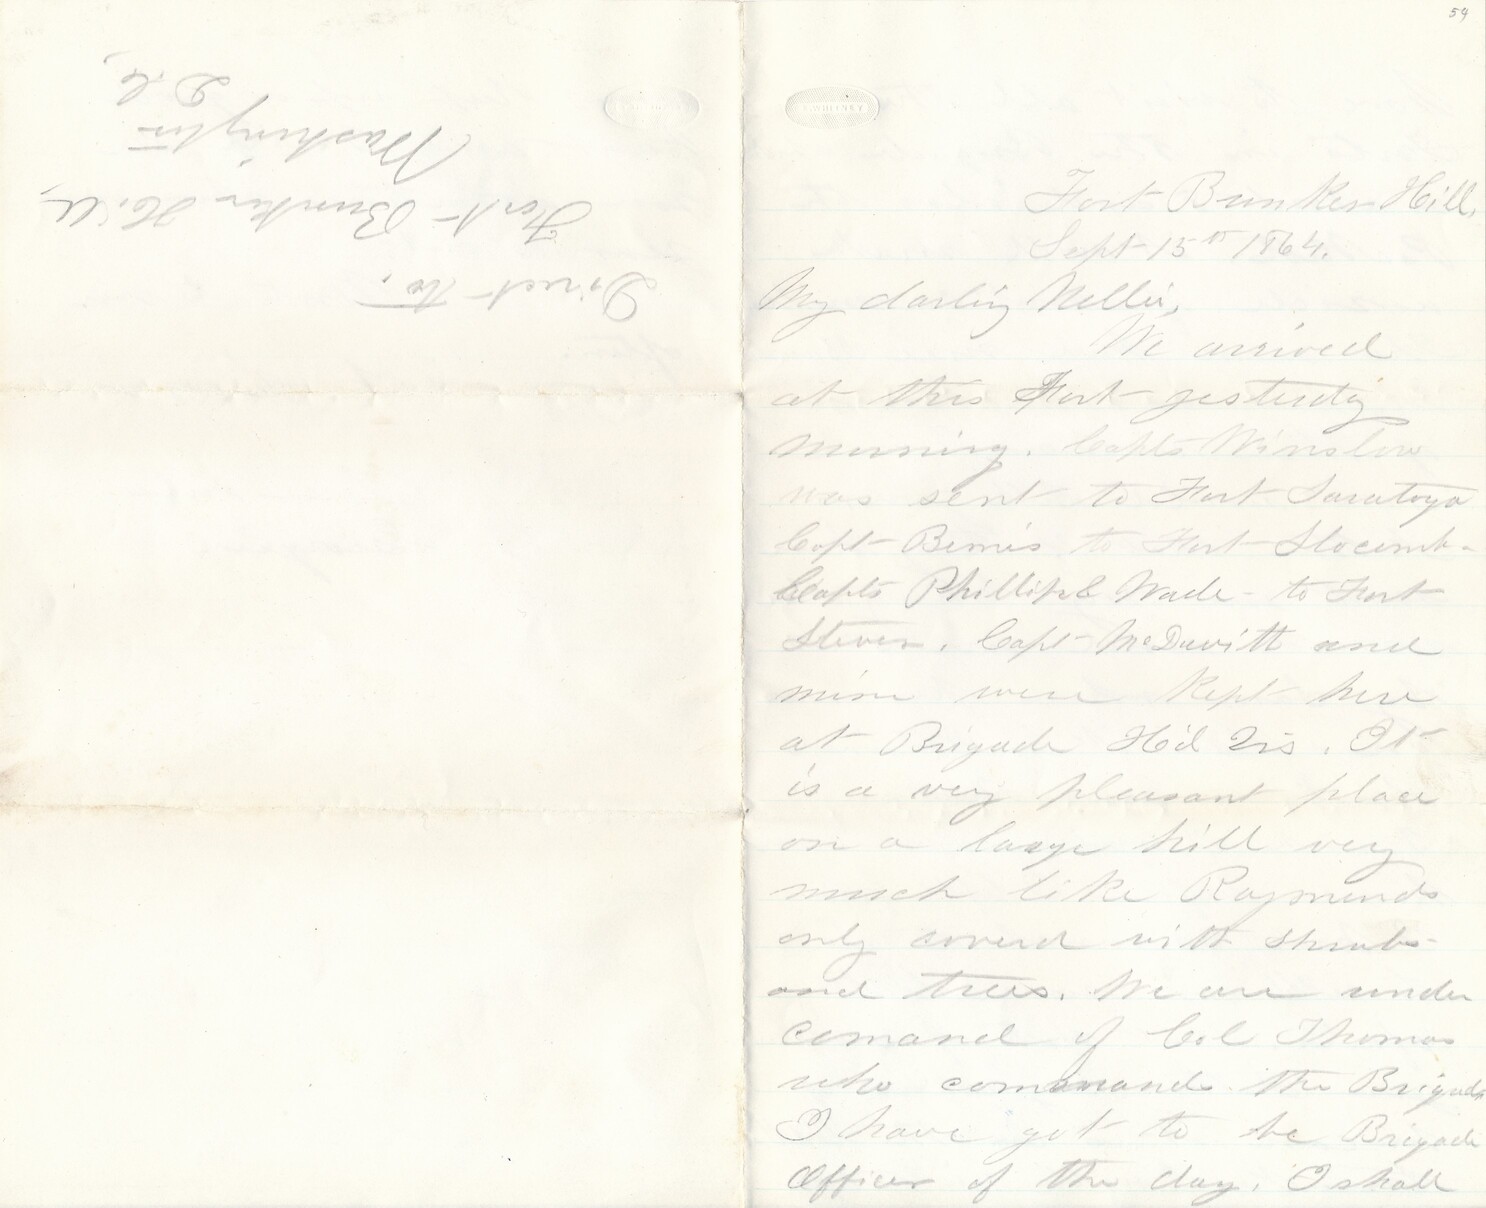 54
WHITNEY
Fort Bunker Hill,
Sept 15th 1864.
My darling Nellie,
We arrived
at this Fort yesterday
morning. Capts Winslow
was sent to Fort Saratoga
Capt Bemis to Fort Slocum -
Capts Phillips & Wade - to Fort
Steven. Capt McDavitt and
mine were kept here
at Brigade Hd Qrs. It
is a very pleasant place
on a large hill very
much like Raymonds
only coverd with shrubs
and trees. We are under
comand of Col Thomas
who commands the Brigade
I have got to be Brigade
Officer of the day. I shall
Direct to,
Fort Bunker Hill,
Washington
D.C.